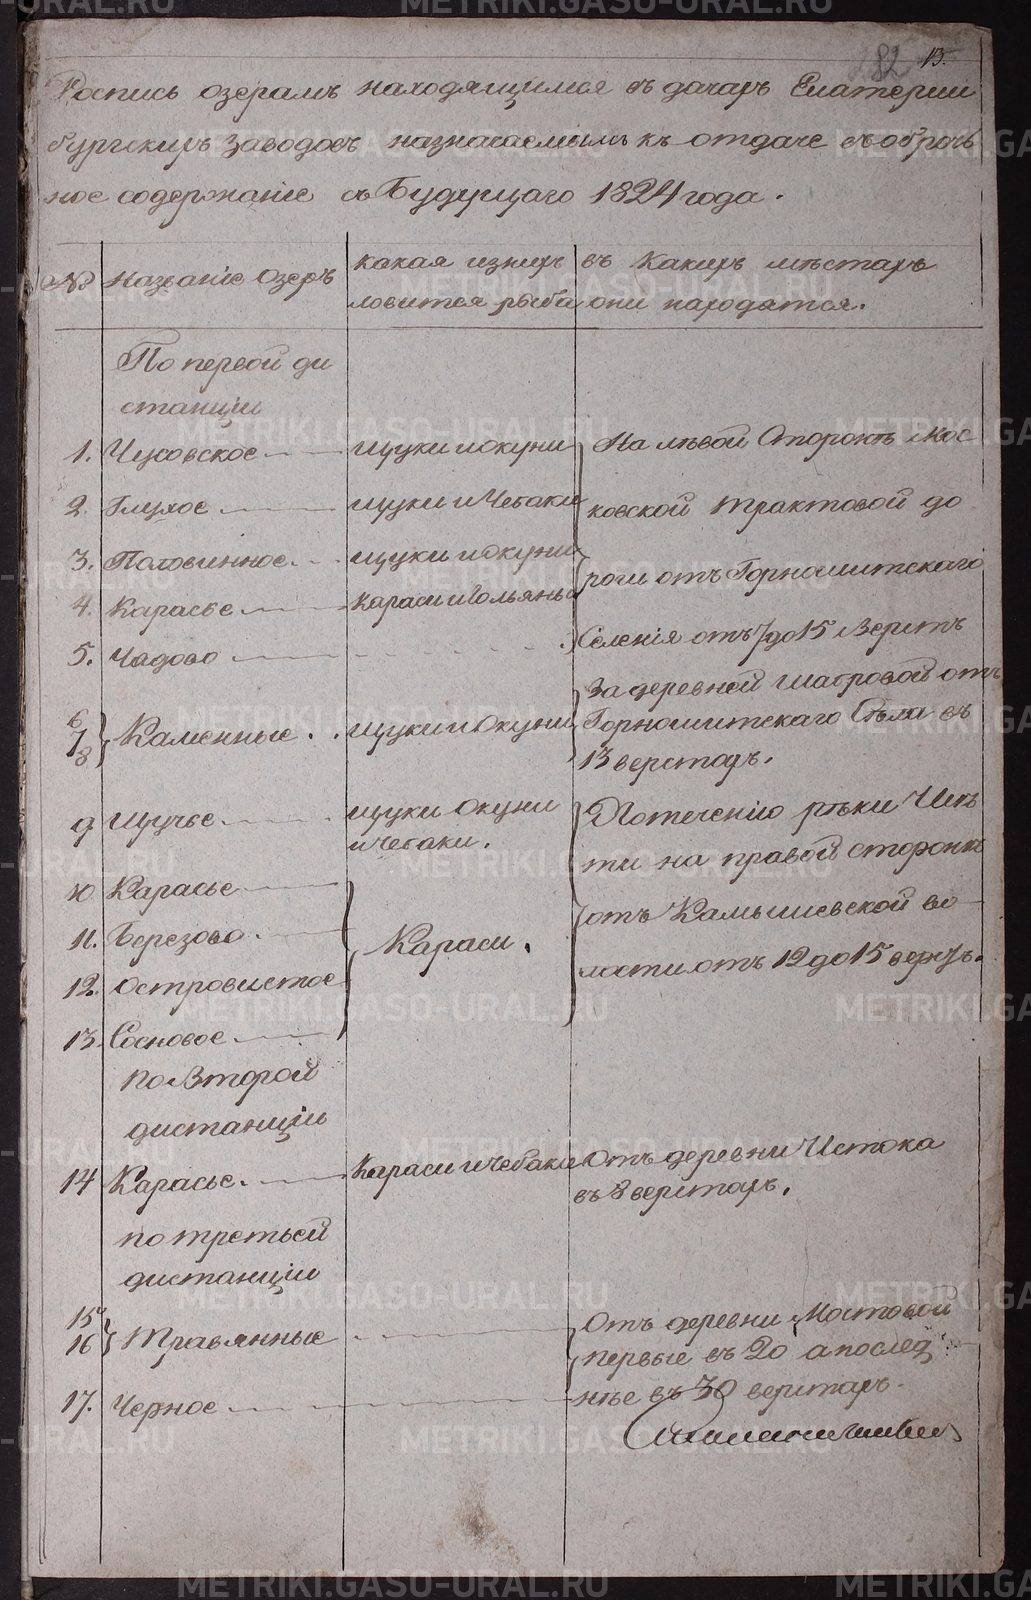 82 13.
Роспись озерамъ находящимся въ дачахъ Екатерин
бургскихъ заводовъ назначаемымъ къ отдаче въ оброч
ное содержание съ будущаго 1824 года.
№ Название озеръ
какая изнихъ
ловится рыба
въ какихъ местахъ
они находятся.
По первой ди
станции
1. Чусовское щуки и окуни На левой стороне Мос
2. Глухое щуки и чебаки ковской трактовой до
3. Половинное щуки и окуни роги отъ Горнощитскаго
4. Карасье Караси и Гольяны
5. Чадово Селения отъ 7 до 15 верстъ
6 7 8 Каменные щуки и окуни
За деревней шабровой отъ
Горнощитскаго Села въ
13 верстахъ.
9 Щучье щуки окуни
и чебаки.
По течению реки Исе
ти на правой стороне
10 Карасье
11. Березово Караси. отъ Камышевской во
12. Островистое лости отъ 12 до 15 верстъ.
13. Сосновое
по Второй
дистанции
14 Карасье. Караси и чебаки Отъ деревни Истока
въ 8 верстахъ.
по третьей
дистанции
15 16 Травянные
Отъ деревни Мостовой
первые въ 20 а послед
17. Черное нее въ 30 верстахъ.
METRIKI.GASO-URAL.RU